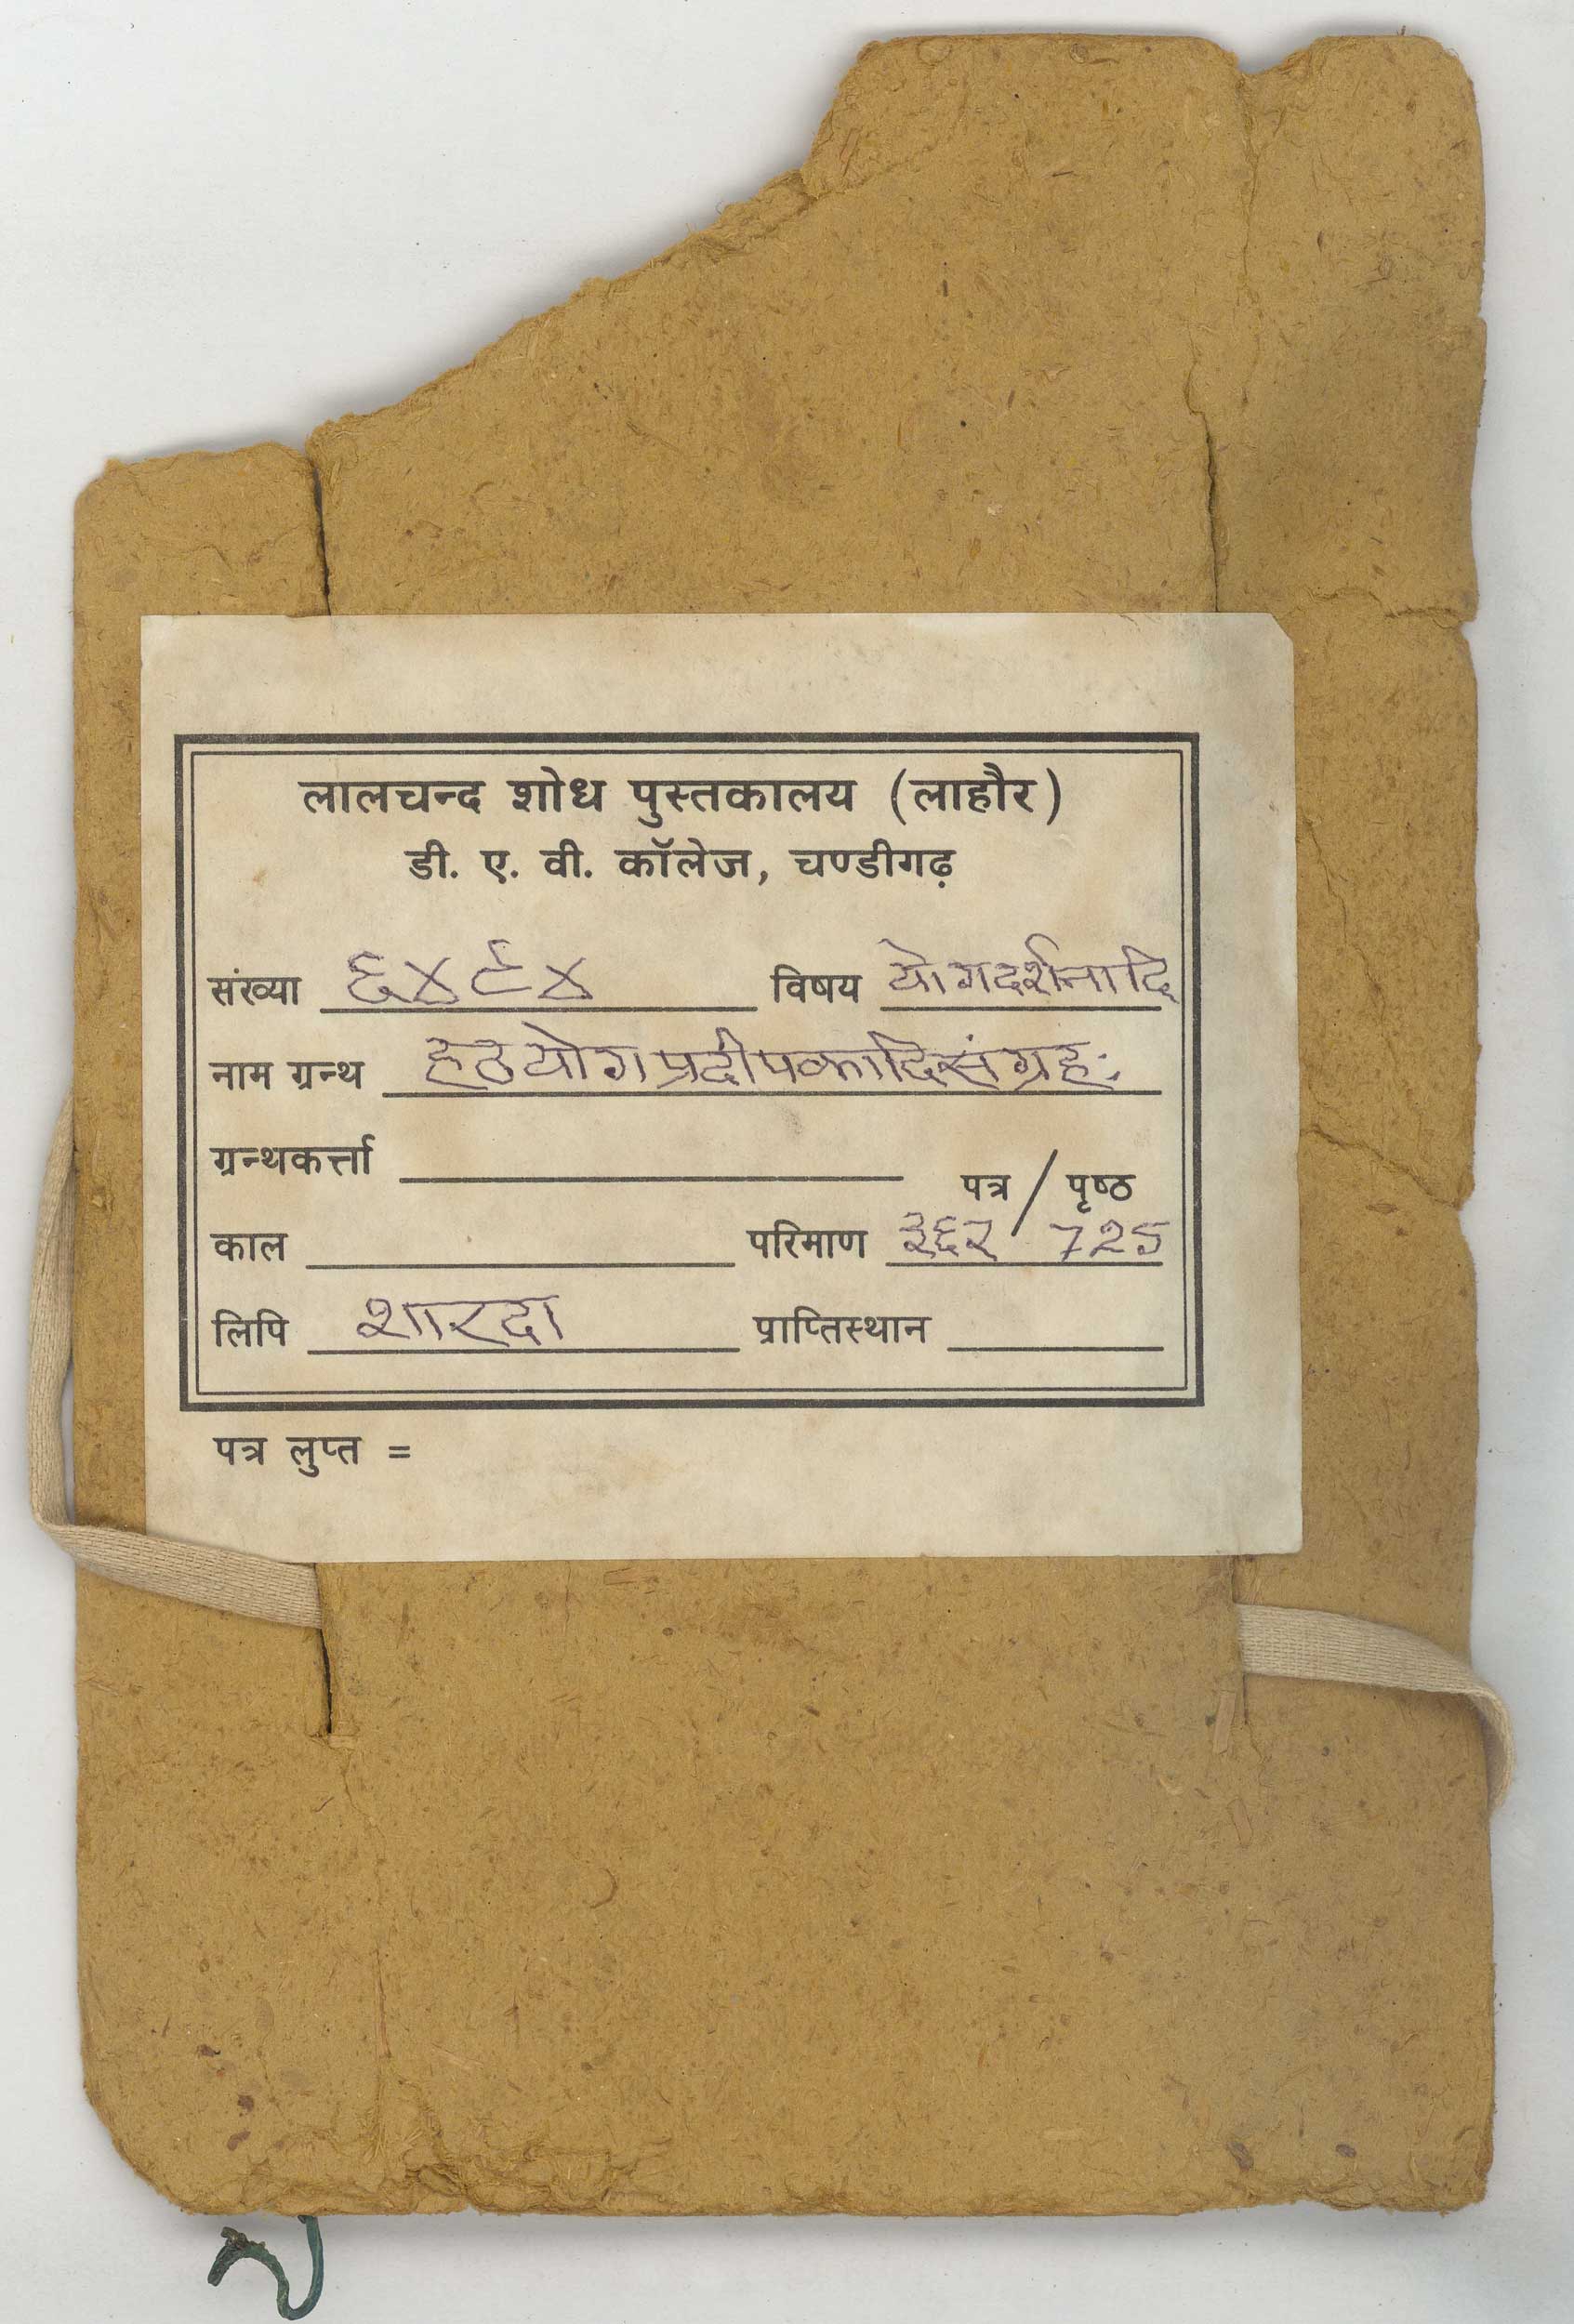 लालचन्द शोध पुस्तकालय (लाहौर)
डी. ए. वी. कॉलेज, चण्डीगढ़
संख्या ६४९४ विषय योगदर्शनादि
नाम ग्रन्थ हठयोगप्रदीपकादिसंग्रहः
ग्रन्थकर्त्ता
पत्र / पृष्ठ
काल परिमाण ३६२ 725
लिपि शारदा प्राप्तिस्थान
पत्र लुप्त =